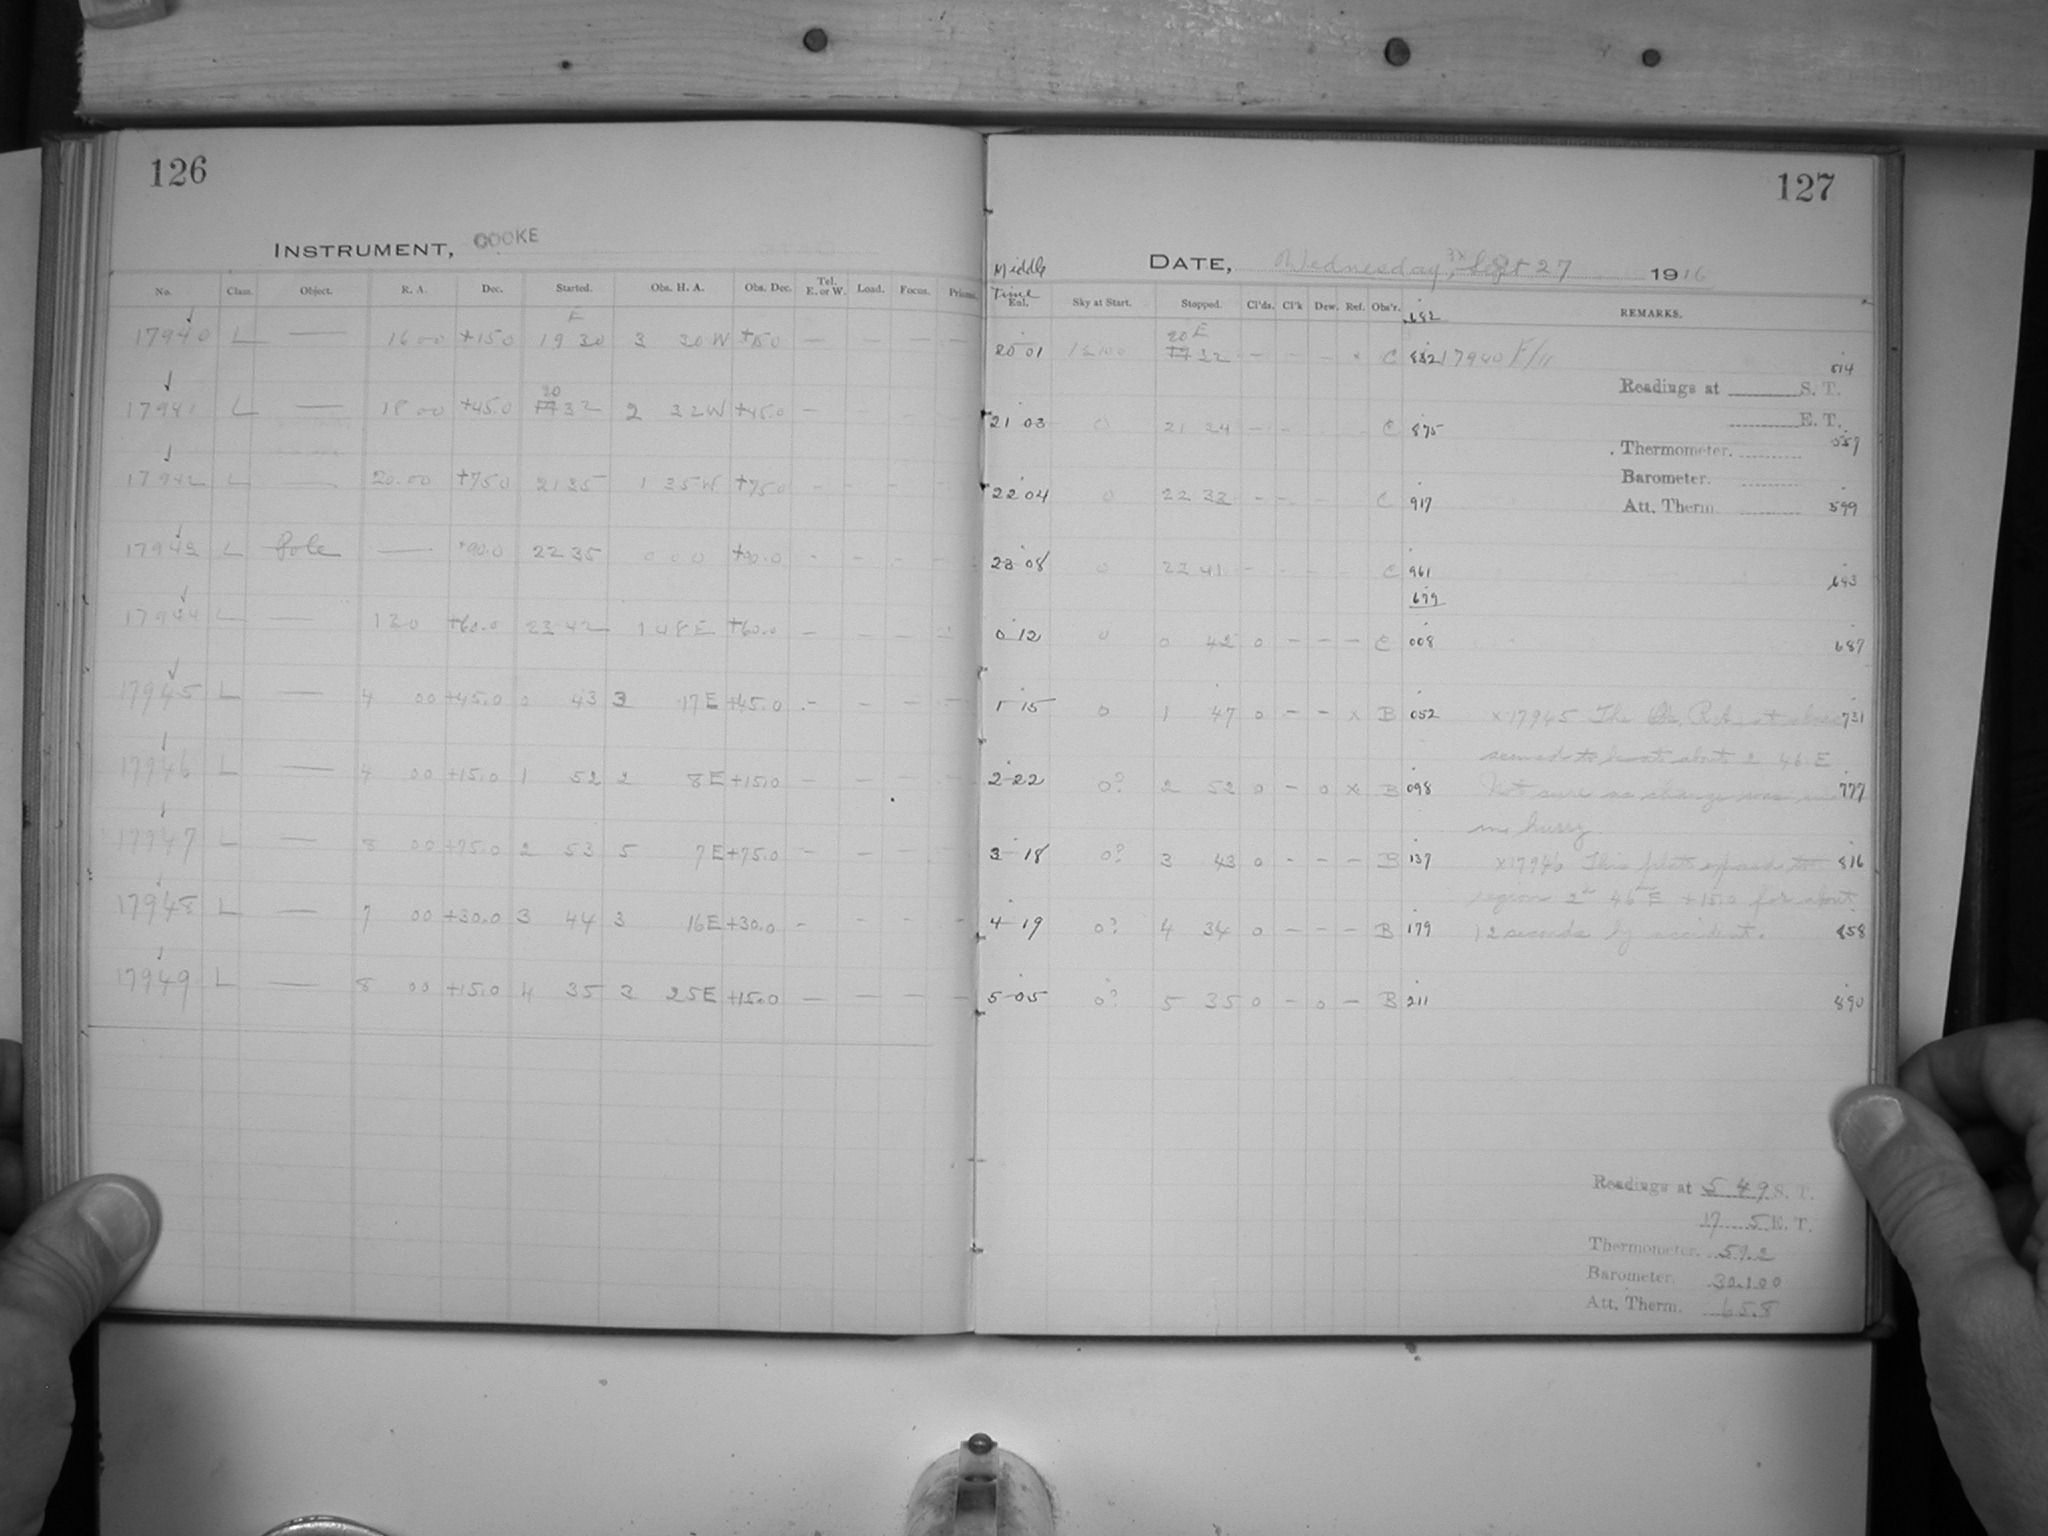 126
INSTRUMENT, COOKE
No. Class. Object. R. A. Dec. Started. Obs. H. A. Obs. Dec. Tel. E. or W. Load. Focus. Prisms.
17940 L — 16 00 +15.0 19 30 3 30 W +15.0 — — — —
17941 L — 18 00 +45.0 20 32 2 32 W +45.0 —
17942 L — 20.00 +75.0 21 35 1 35 W +75.0 - - - -
17943 L Pole — +90.0 22 35 0 0 0 +90.0 - - - -
17944 L — 1 30 +60.0 23 42 1 48 E +60.0 — — — —
17945 L — 4 00 +45.0 0 43 3 17 E +45.0 — — — —
17946 L — 4 00 +15.0 1 52 2 8 E +15.0 — — — —
17947 L — 8 00 +75.0 2 53 5 7 E +75.0 — — — —
17948 L — 7 00 +30.0 3 44 3 16 E +30.0 - - - -
17949 L — 8 00 +15.0 4 35 3 25 E +15.0 — — — —
127
DATE, Wednesday, Sept 27 1916
Middle Time
Eal. Sky at Start. Stopped. Cl'ds. Cl'k Dew. Ref. Obs'r. REMARKS.
682
20 01 20 32 — — — x C 832 17940 F/11 514
Readings at S. T.
E. T.
21 03 0 21 34 — - C 875 557
Thermometer.
Barometer.
22 04 0 22 33 - - C 917 599
Att. Therm.
23 08 0 22 41 - C 961 643
679
0 12 0 0 42 0 - - — C 008 687
1 15 0 1 47 0 - - x B 052 x17945 The Obs. R.A. at close 731
seemed to be at about 2 46 E
2 22 0? 2 52 0 - 0 x B 098 Not sure as change was in 777
my hurry
3 18 0? 3 43 0 - - - B 137 x17946 This plate exposed to 816
region 2h 46m E +15.0 for about
4 19 0? 4 34 0 - - - B 179 12 seconds by accident. 858
5 05 0? 5 35 0 - 0 - B 211 890
Readings at 5 49 S. T.
17 5 E. T.
Thermometer. 59.2
Barometer. 30.100
Att. Therm. 65.8